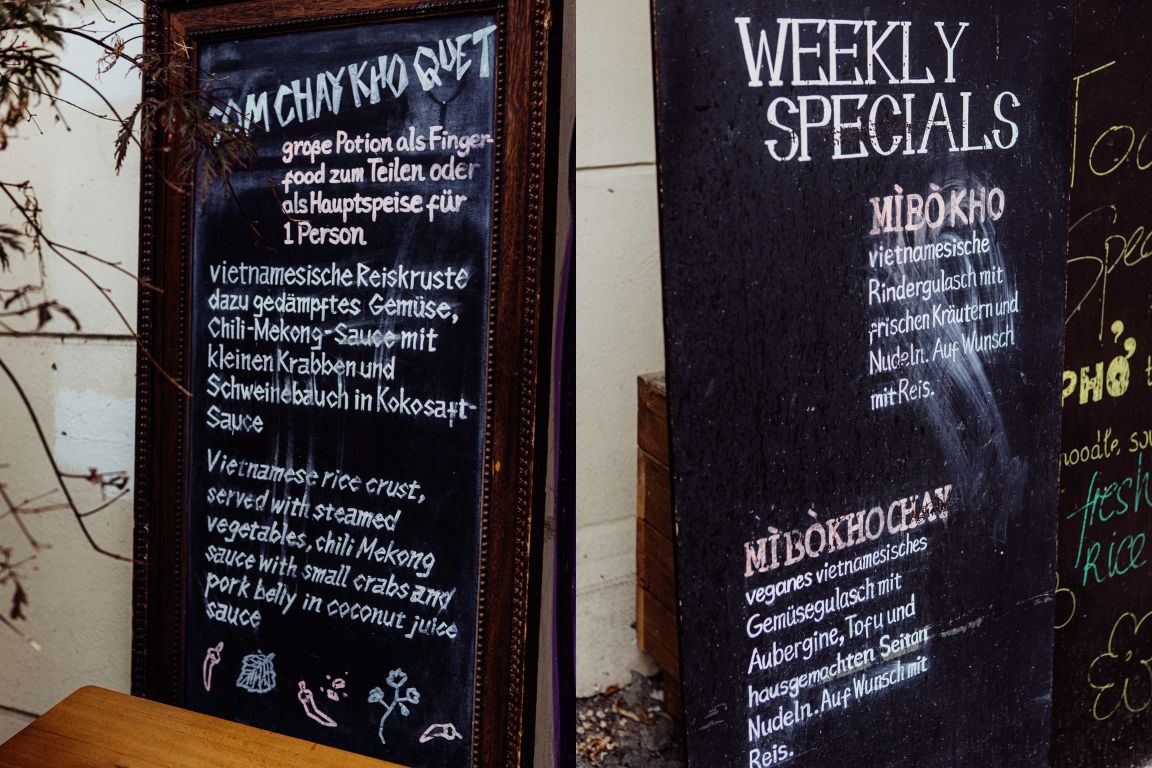 COM CHAY KHO QUET
große Potion als Finger-
food zum Teilen oder
als Hauptspeise für
1 Person
vietnamesische Reiskruste
dazu gedämpftes Gemüse,
Chili-Mekong-Sauce mit
kleinen Krabben und
Schweinebauch in Kokosaft-
Sauce
Vietnamese rice crust,
served with steamed
vegetables, chili Mekong
sauce with small crabs and
pork belly in coconut juice
sauce
WEEKLY
SPECIALS
MÌ BÒ KHO
vietnamesische
Rindergulasch mit
frischen Kräutern und
Nudeln. Auf Wunsch
mit Reis.
MÌ BÒ KHO CHAY
veganes vietnamesisches
Gemüsegulasch mit
Aubergine, Tofu und
hausgemachten Seitan
Nudeln. Auf Wunsch mit
Reis.
PHỞ
noodle
fresh
Rice